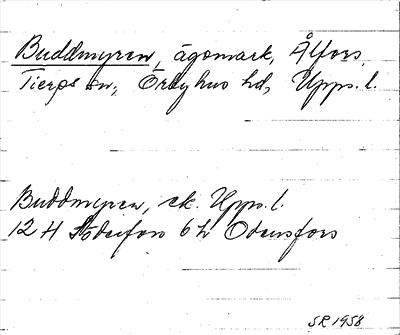 Buddmyren, ägomark, Ålfors,
Tierps sn, Örbyhus hd, Upps. l.
Buddmyren, ek. Upps. l.
12 H Söderfors 6 h Odensfors
SR 1958